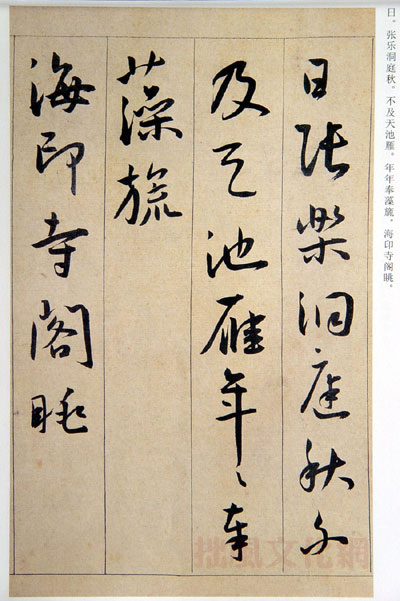 日。张乐洞庭秋。不及天池雁。年年奉藻旒。海印寺阁眺。
日張樂洞庭秋不
及天池雁年〻奉
藻旒
海印寺閣眺
拙風文化網